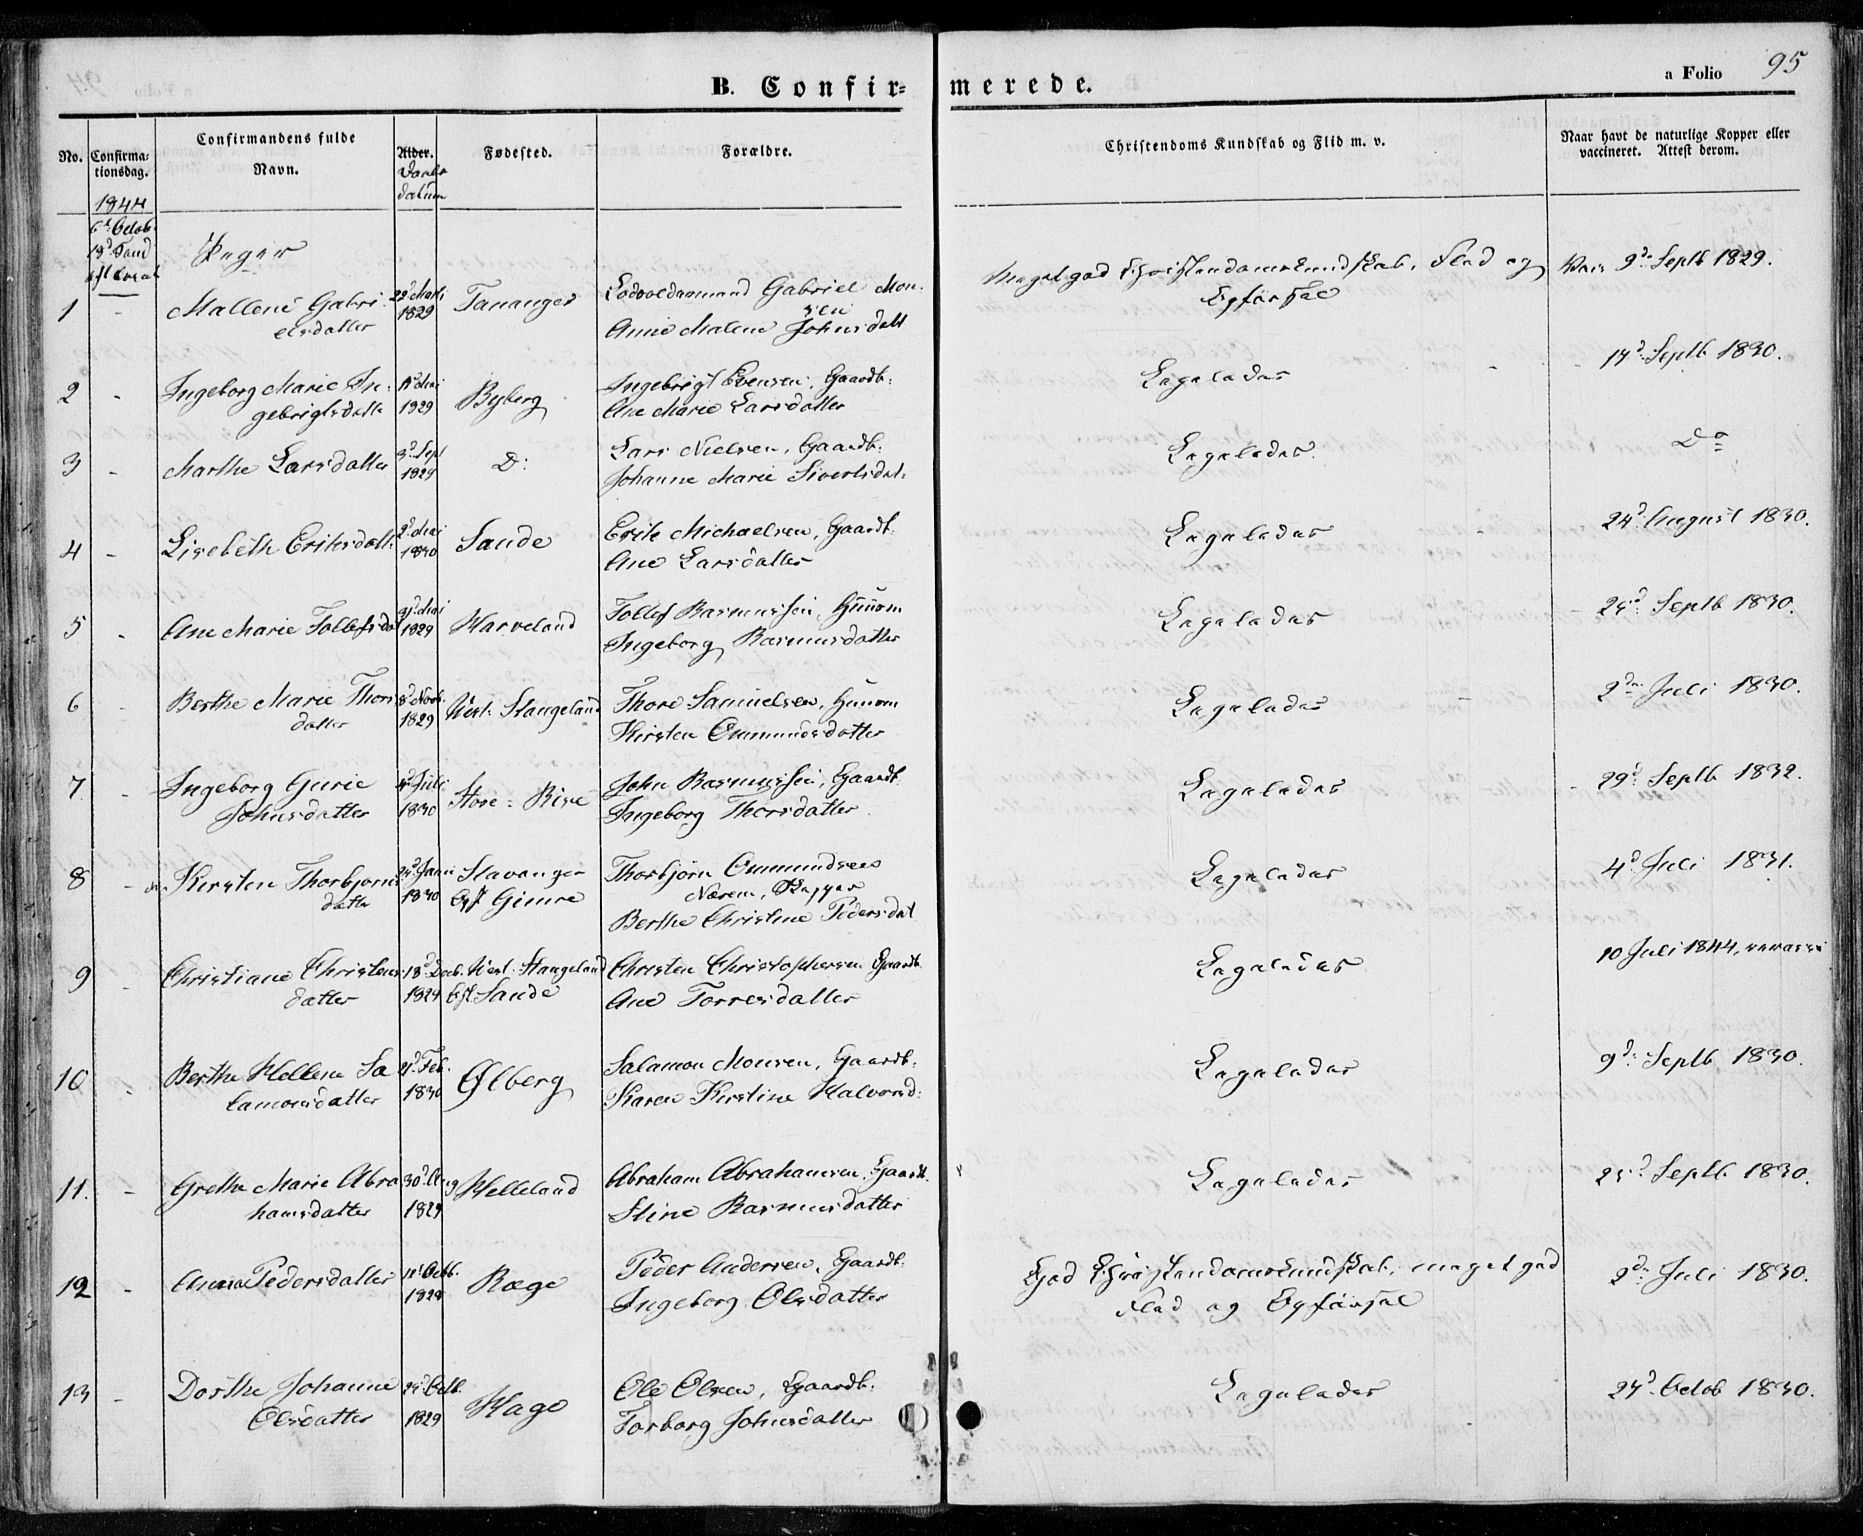 B. Confir-
merede.
a Folio 95
No.
Confirma-
tionsdag.
Confirmandens fulde
Navn.
Alder.
Fødested.
Forældre.
Christendoms Kundskab og Flid m. v.
Naar havt de naturlige Kopper eller
vaccineret. Attest derom.
datum
1844
6d Octob.
Piger
1 - Mallene Gabri-
elsdatter
1829
Tananger
Gabriel Mon-
sen
Anne Malene Johnsdatt
Meget god Christendomskundskab, Flid og
Opførsel
Vac. 9d Septb 1829.
2 - Ingeborg Marie In-
gebrigtsdatte
1829
Byberg
Ingebrigt Evensen, Gaardb:
Ane Marie Larsdatter
Ligeledes
14d Septb 1830.
3 - Marthe Larsdatter
3d Sept
1829
D:
Lars Nielsen, Gaardb:
Johanne Marie Sivertsdat:
Ligeledes
Do
4 - Lisebeth Eriksdatt:
2d Mai
1830
Sande
Erik Michaelsen, Gaardb:
Ane Larsdatter
Ligeledes
24d August 1830.
5 - Ane Marie Tollefsdat
1829
Harveland
Tollef Rasmussen, Huusm
Ingeborg Rasmusdatter
Ligeledes
25d Septb 1830.
6 - Berthe Marie Thors
datter
8d Novb.
1829
Vest: Stangeland
Thore Samuelsen, Huusm
Kirsten Ommundsdatter
Ligeledes
2den Juli 1830.
7 - Ingeborg Gurie
Johnsdatter
Juli
1830
Store-Risé
John Rasmussen, Gaardb
Ingeborg Thorsdatter
Ligeledes
29d Septb 1832.
8 - Kirsten Thorbjørns
datte
1830
Stavanger
Opf Gimre
Thorbjørn Ommundsen
Nærem,
Berthe Christine Pedersdat
Ligeledes
4d Juli 1831.
9 - Christiane Christens
datter
18d Decb.
1829
Vest: Stangeland
Opf Sande
Christen Christophersen Gaardb.
Ane Torresdatter
Ligeledes
10 Juli 1844,
10 - Berthe Hellene Sa
lamonsdatter
21d Feb.
1830
Ølberg
Salamon Monsen, Gaardb:
Karen Kirstine Halvorsd:
Ligeledes
9d: Septb 1830.
11. - Grethe Marie Abra
hamsdatter
30d Aug
1829
Helleland
Abraham Abrahamsen, Gaardb.
Stine Rasmusdatter
Ligeledes
25d Septb 1830.
12 - Anna Pedersdatter
11d Octb.
1829
Ræge
Peder Andersen, Gaardb:
Ingeborg Olsdatter
God Christendomskundskab, meget god
Flid og Opførsel
2d: Juli 1830.
13 - Dorthe Johanne
Olsdatter
25d Octb.
1829
Hage
Ole Olsen, Gaardb:
Torborg Johnsdatter
Ligeledes
27d Octob 1830.